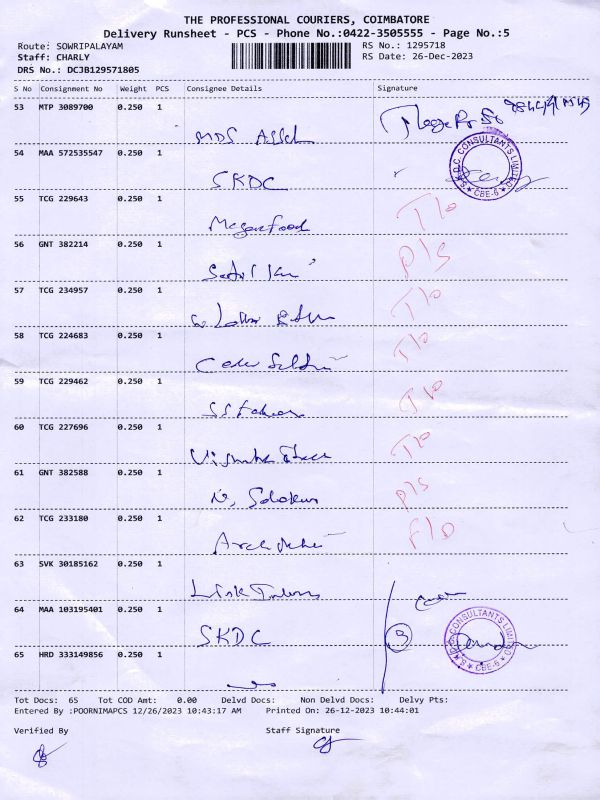 THE PROFESSIONAL COURIERS, COIMBATORE
Delivery Runsheet - PCS - Phone No.:0422-3505555 - Page No.:5
Route: SOWRIPALAYAM RS No.: 1295718
Staff: CHARLY RS Date: 26-Dec-2023
DRS No.: DCJB129571805
S No Consignment No Weight PCS Consignee Details Signature
53 MTP 3089700 0.250 1
MDS
54 MAA 572535547 0.250 1
SKDC
S.K.D.C. CONSULTANTS LIMITED
CBE-6
55 TCG 229643 0.250 1
T/o
56 GNT 382214 0.250 1
P/S
57 TCG 234957 0.250 1
T/o
58 TCG 224683 0.250 1
T/o
59 TCG 229462 0.250 1
T/o
60 TCG 227696 0.250 1
T/o
61 GNT 382588 0.250 1
P/S
62 TCG 233180 0.250 1
F/o
63 SVK 30185162 0.250 1
64 MAA 103195401 0.250 1
SKDC
3
S.K.D.C. CONSULTANTS LIMITED
CBE-6
65 HRD 333149856 0.250 1
Tot Docs: 65 Tot COD Amt: 0.00 Delvd Docs: Non Delvd Docs: Delvy Pts:
Entered By :POORNIMAPCS 12/26/2023 10:43:17 AM Printed On: 26-12-2023 10:44:01
Verified By Staff Signature